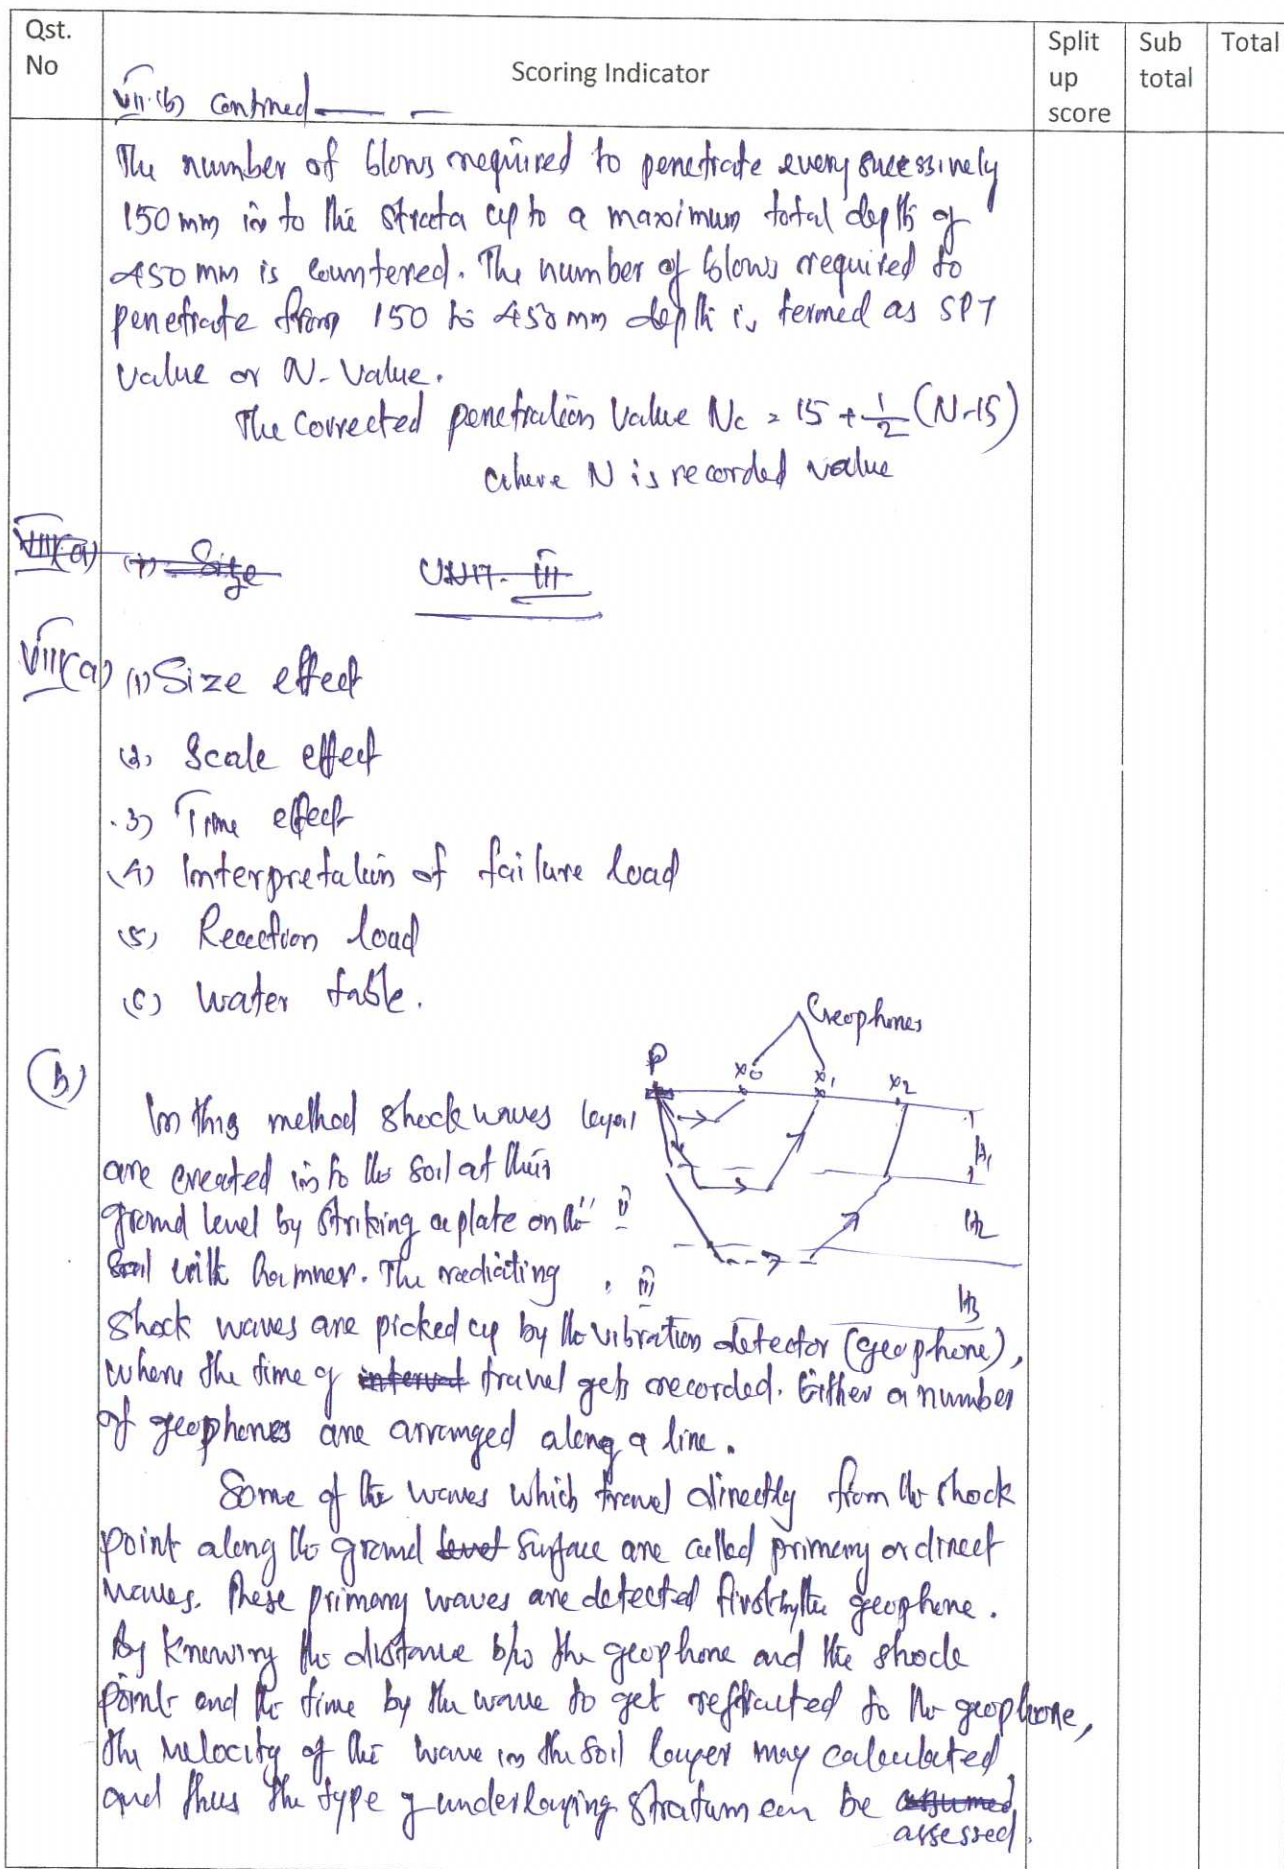 Qst. No
Scoring Indicator
Split up score
Sub total
Total
VII.(b) Contined
The number of blows required to penetrate every sucessively
150 mm in to the strata up to a maximum total depth of
450 mm is countered. The number of blows required to
penetrate from 150 to 450 mm depth is termed as SPT
Value or N-Value.
The Corrected penetration Value Nc = 15 + 1/2 (N-15)
where N is recorded value
VIII(a) (1) Size
UNIT- III
VIII(a) (1) Size effect
(2) Scale effect
(3) Time effect
(4) Interpretation of failure load
(5) Reaction load
(6) Water table.
(b)
Geophones
P
x0 x1 x2
In this method shock waves layer I
are created in to the soil at their
ground level by striking a plate on the " II
soil with hammer. The radiating " III
H1
H2
H3
shock waves are picked up by the vibration detector (geophone),
where the time of interval travel gets recorded. Either a number
of geophones are arranged along a line.
Some of the waves which travel directly from the shock
point along the ground level surface are called primary or direct
waves. These primary waves are detected first by the geophone.
By knowing the distance b/w the geophone and the shock
point and the time by the wave to get refracted to the geophone,
the velocity of the wave in the soil layer may calculated
and thus the type of underlaying stratum can be assumed
assessed.